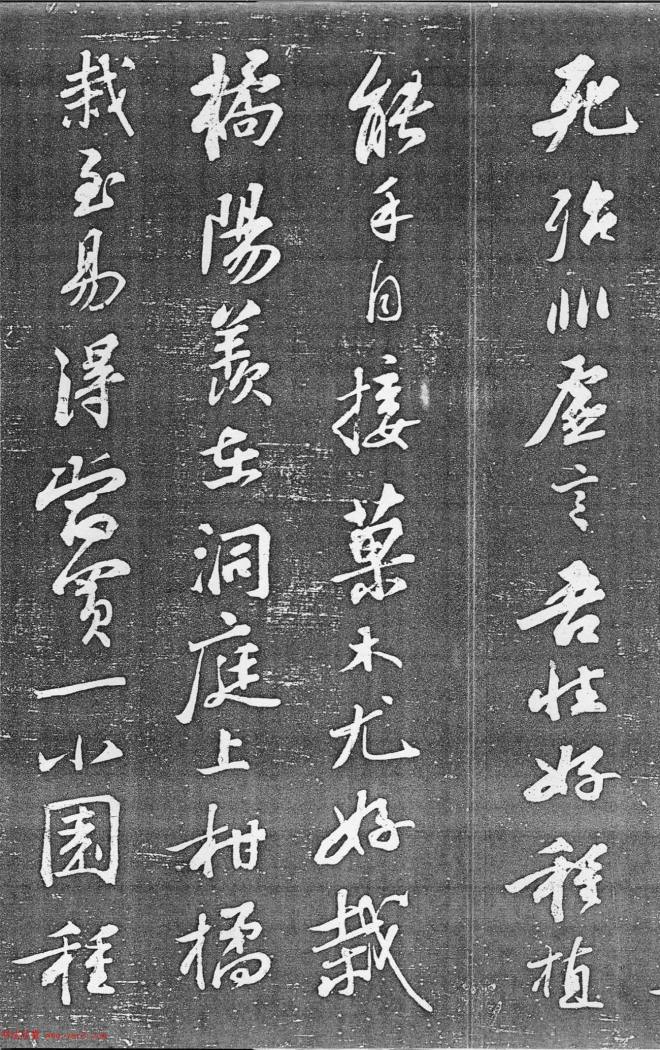 死殆非虛言吾性好種植
能手自接菓木尤好栽
橘陽羨在洞庭上柑橘
栽至易得當買一小園種